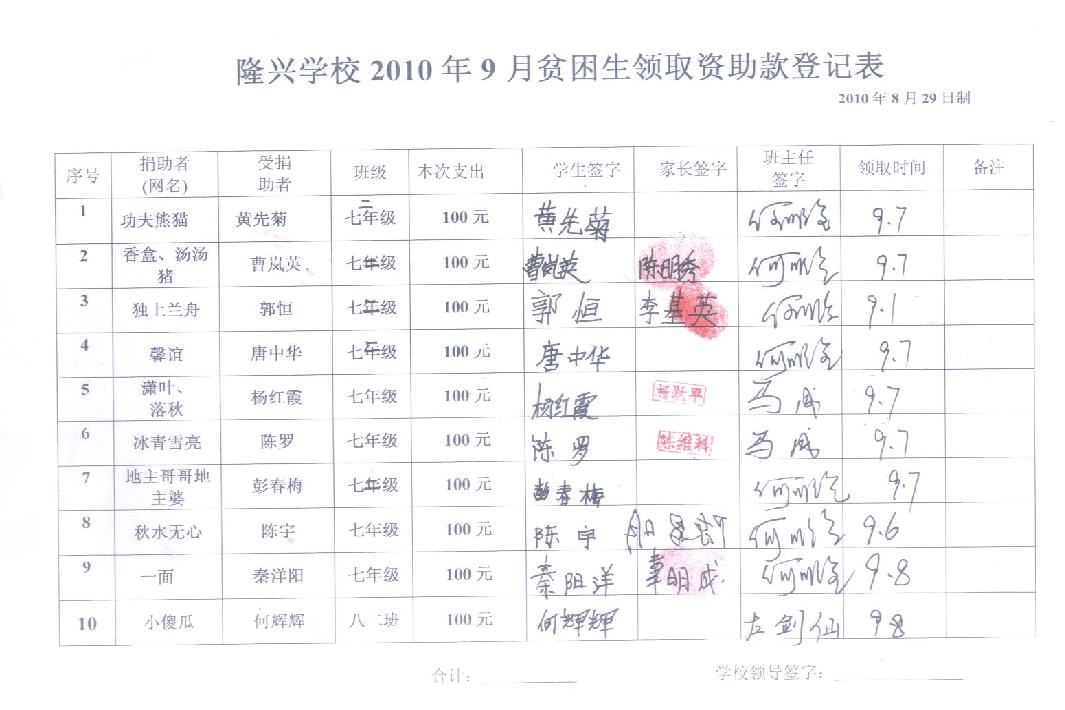 隆兴学校 2010 年 9 月贫困生领取资助款登记表
2010 年 8 月 29 日制
序号 捐助者(网名) 受捐助者 班级 本次支出 学生签字 家长签字 班主任签字 领取时间 备注
1 功夫熊猫 黄先菊 七年级 二 100 元 黄先菊 9.7
2 香盒、汤汤猪 曹岚英 七年级 100 元 曹岚英 陈明秀 9.7
3 独上兰舟 郭恒 七年级 二 100 元 郭恒 李基英 9.1
4 馨谊 唐中华 七年级 二 100 元 唐中华 9.7
5 潇叶、落秋 杨红霞 七年级 100 元 杨红霞 杨跃平 9.7
6 冰青雪亮 陈罗 七年级 100 元 陈罗 陈维科 9.7
7 地主哥哥地主婆 彭春梅 七年级 100 元 彭春梅 9.7
8 秋水无心 陈宇 七年级 100 元 陈宇 9.6
9 一面 秦洋阳 七年级 100 元 秦阳洋 9.8
10 小傻瓜 何辉辉 八二班 100 元 何辉辉 左剑仙 9.8
合计：
学校领导签字：